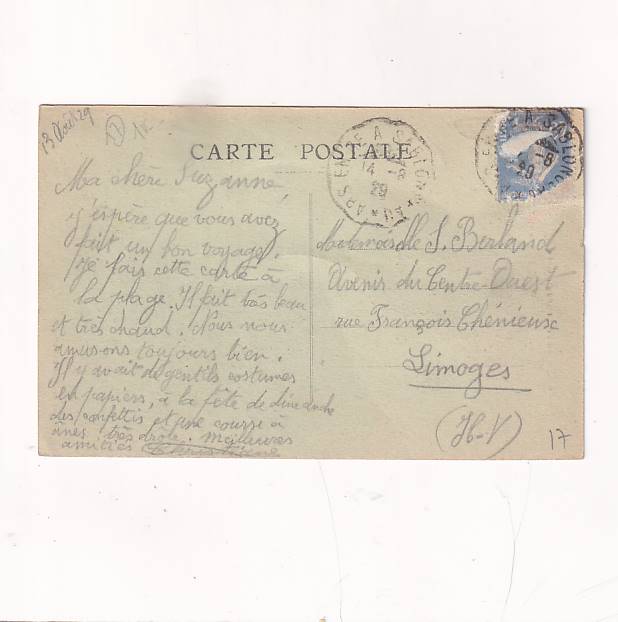 13 Août 29
CARTE POSTALE
Ma chère Suzanne,
j'espère que vous avez
fait un bon voyage.
Je fais cette carte à
la plage. Il fait très beau
et très chaud. Nous nous
amusons toujours bien.
Il y avait de gentils costumes
en papiers, à la fête de dimanche
des confettis et une course à
ânes. très drôle. Meilleures
amitiés Christiane
14 -8
29
14 -8
29
Mademoiselle S. Berland
Avenir du Centre-Ouest
rue François Chénieux
Limoges
(H-V)
17